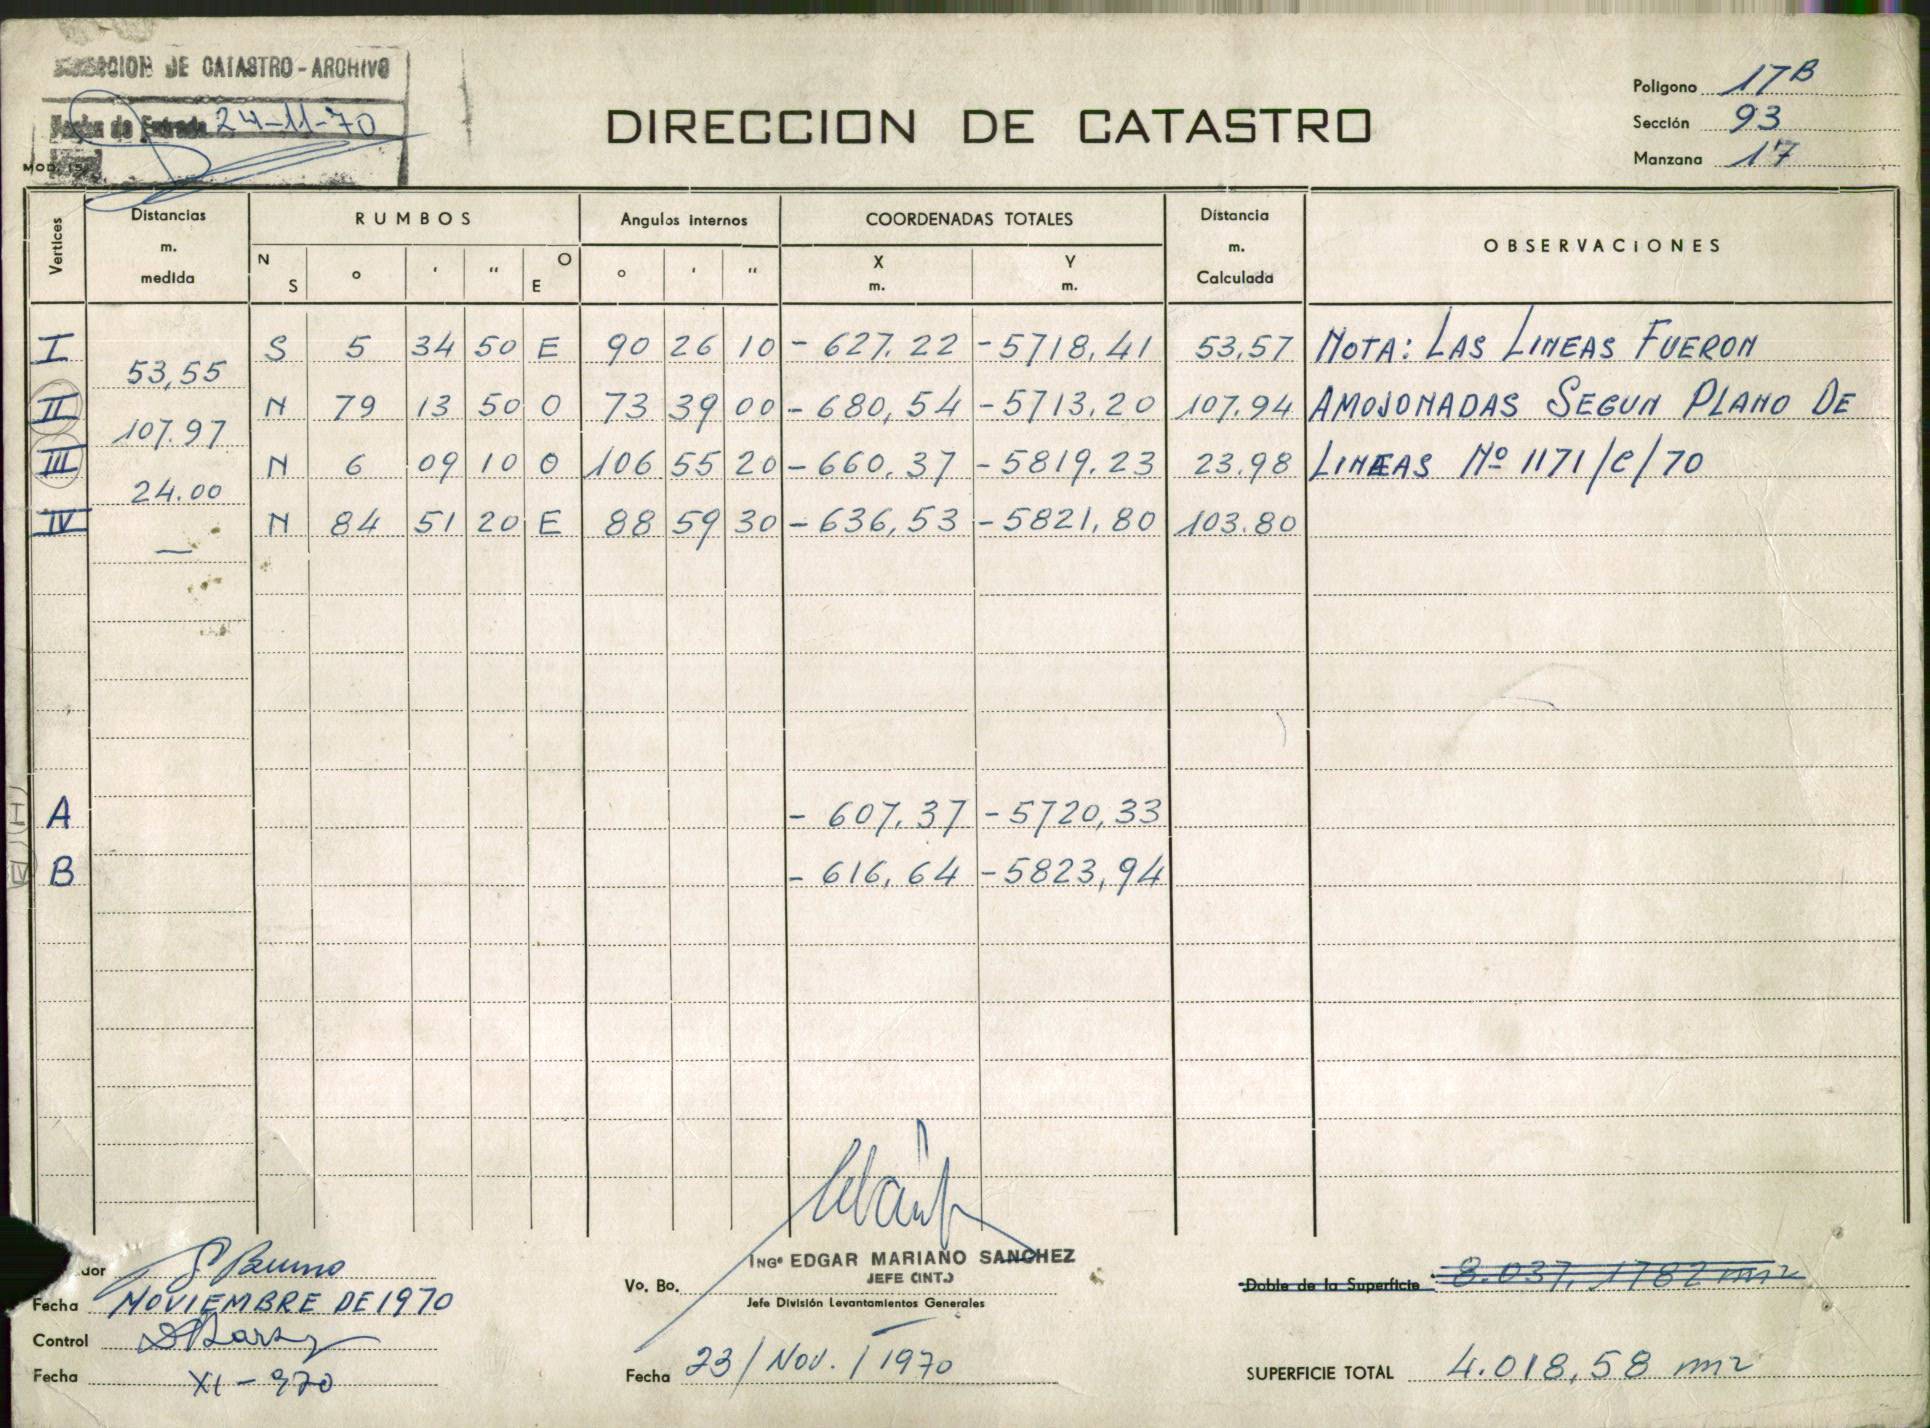 DIRECCION DE CATASTRO - ARCHIVO
Fecha de Entrada 24-11-70
MOD.
DIRECCION DE CATASTRO
Poligono 17B
Sección 93
Manzana 17
Vertices
Distancias m. medida
RUMBOS
N S ° ' " O E
Angulos internos
° ' "
COORDENADAS TOTALES
X m. Y m.
Distancia m. Calculada
OBSERVACIONES
I S 5 34 50 E 90 26 10 - 627.22 - 5718,41 53,57 NOTA: LAS LINEAS FUERON
53,55
II N 79 13 50 O 73 39 00 - 680,54 - 5713,20 107.94 AMOJONADAS SEGUN PLANO DE
107.97
III N 6 09 10 O 106 55 20 - 660.37 - 5819.23 23.98 LINEAS Nº 1171/C/70
24.00
IV N 84 51 20 E 88 59 30 - 636,53 - 5821,80 103.80
—
A - 607.37 - 5720,33
B - 616,64 - 5823,94
dor
Fecha NOVIEMBRE DE 1970
Control
Fecha XI - 970
Vo. Bo.
INGº EDGAR MARIANO SANCHEZ
JEFE (INT.)
Jefe División Levantamientos Generales
Fecha 23 / Nov. / 1970
Doble de la Superficie 8.037,1782 m2
SUPERFICIE TOTAL 4.018,58 m2